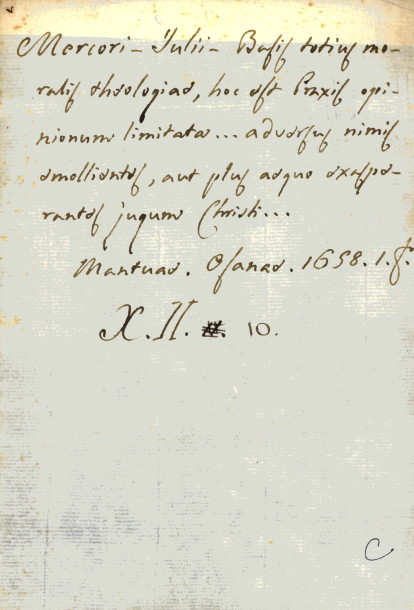 Mercori - Julii - Basis totius mo-
ralis theologiae, hoc est Praxis opi-
nionum limitata... adversus nimis
emollientes, aut plus aequo exaspe-
rantes jugum Christi...
Mantuae. Osanae. 1658. 1. fº.
X. II. 10.
C